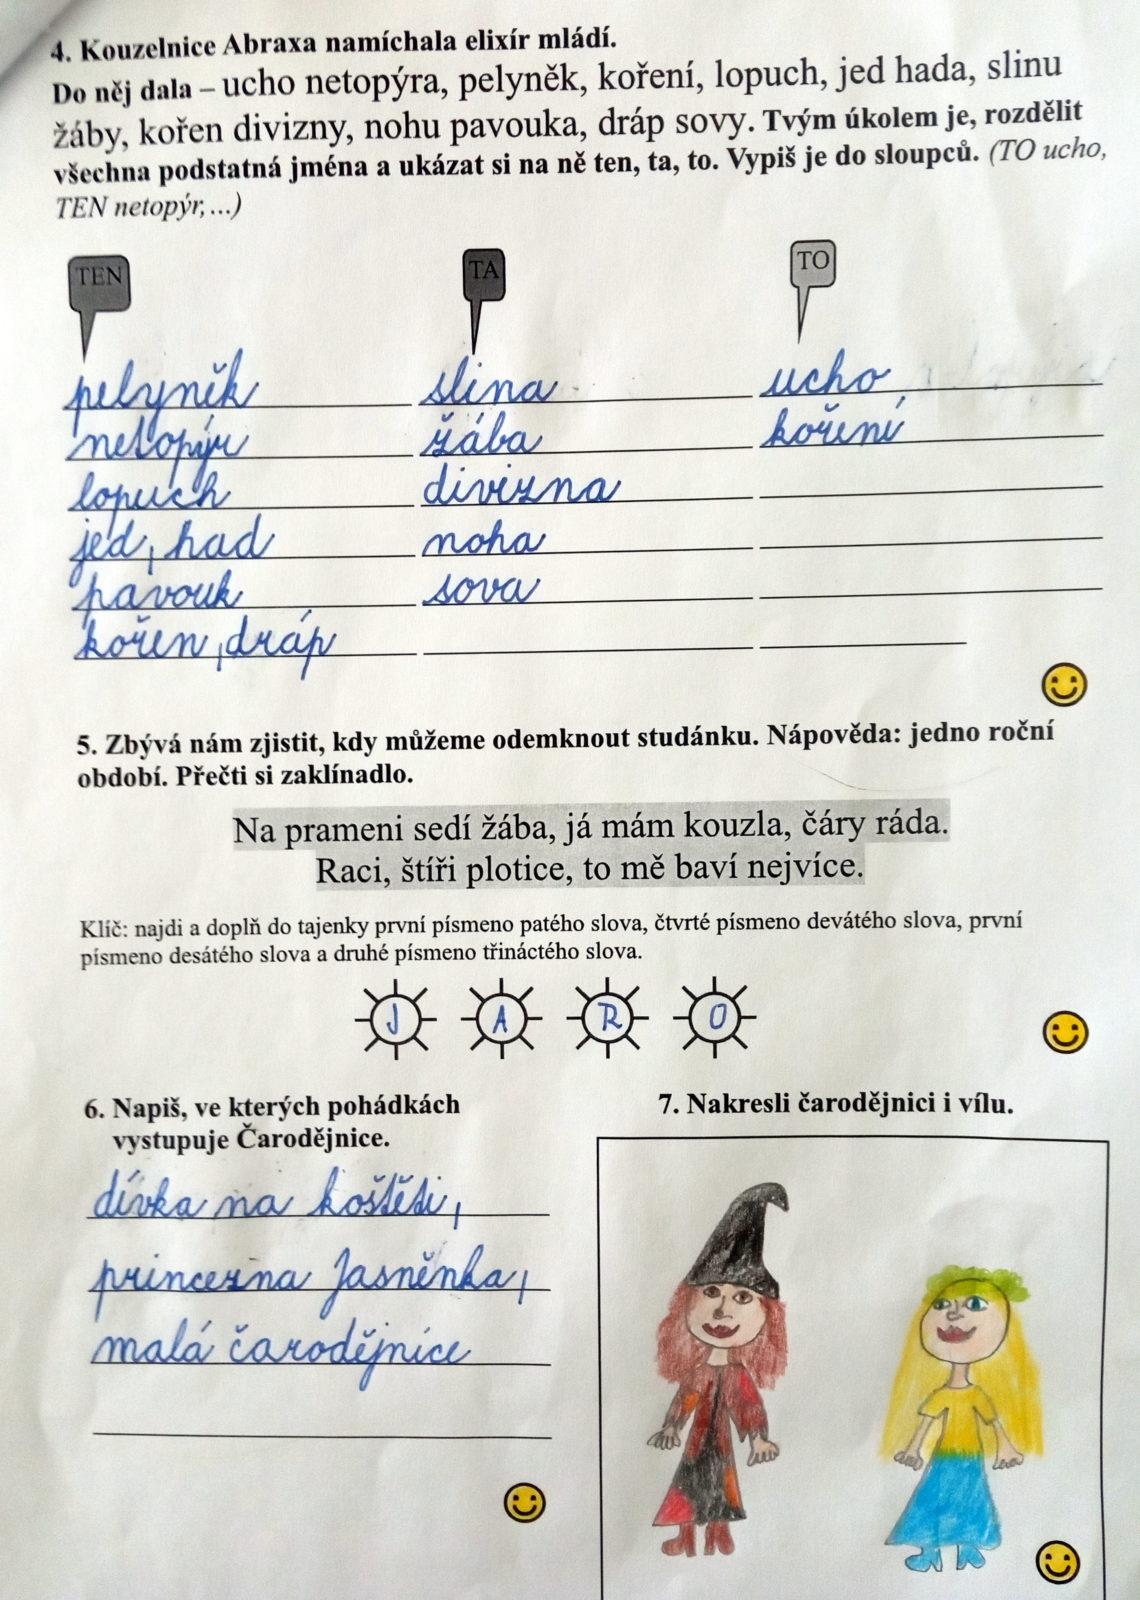 4. Kouzelnice Abraxa namíchala elixír mládí.
Do něj dala – ucho netopýra, pelyněk, koření, lopuch, jed hada, slinu
žáby, kořen divizny, nohu pavouka, dráp sovy. Tvým úkolem je, rozdělit
všechna podstatná jména a ukázat si na ně ten, ta, to. Vypiš je do sloupců. (TO ucho,
TEN netopýr, ...)
TEN TA TO
pelyněk slina ucho
netopýr žába koření
lopuch divizna
jed, had noha
pavouk sova
kořen, dráp
5. Zbývá nám zjistit, kdy můžeme odemknout studánku. Nápověda: jedno roční
období. Přečti si zaklínadlo.
Na prameni sedí žába, já mám kouzla, čáry ráda.
Raci, štíři plotice, to mě baví nejvíce.
Klíč: najdi a doplň do tajenky první písmeno patého slova, čtvrté písmeno devátého slova, první
písmeno desátého slova a druhé písmeno třináctého slova.
J A R O
6. Napiš, ve kterých pohádkách
vystupuje Čarodějnice.
dívka na koštěti,
princezna Jasněnka,
malá čarodějnice
7. Nakresli čarodějnici i vílu.